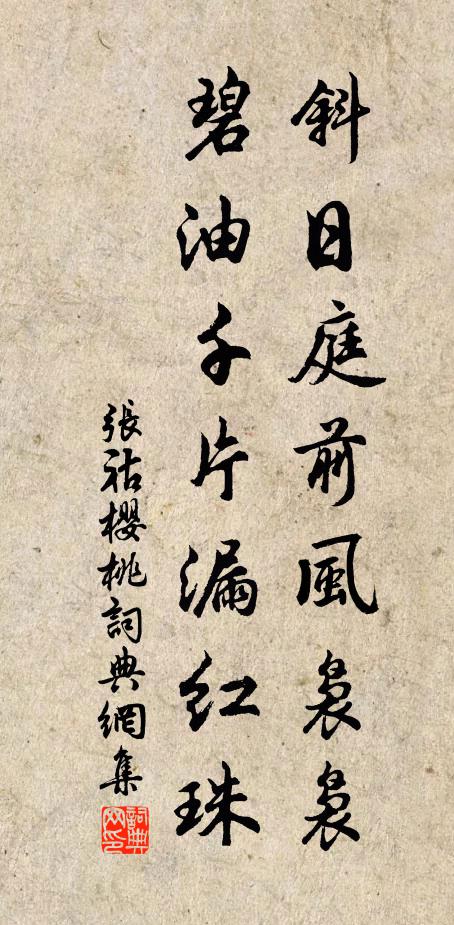 斜日庭前風裊裊
碧油千片漏紅珠
張祜櫻桃詞典網集
詞典網印